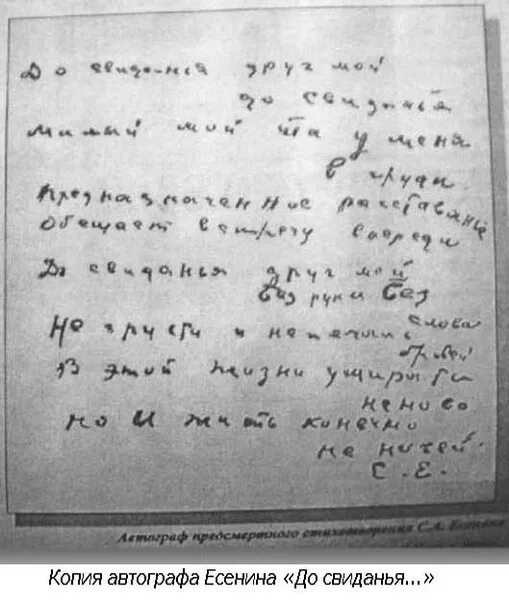 До свиданья друг мой
до свиданья
милый мой ты у меня
в груди
Предназначенное расставанье
Обещает встречу впереди
До свиданья друг мой
без руки без
слова
Не грусти и не печаль
бровей
В этой жизни умирать
не ново
но и жить конечно
не новей.
С. Е.
Автограф предсмертного стихотворения С.А. Есенина
Копия автографа Есенина «До свиданья...»